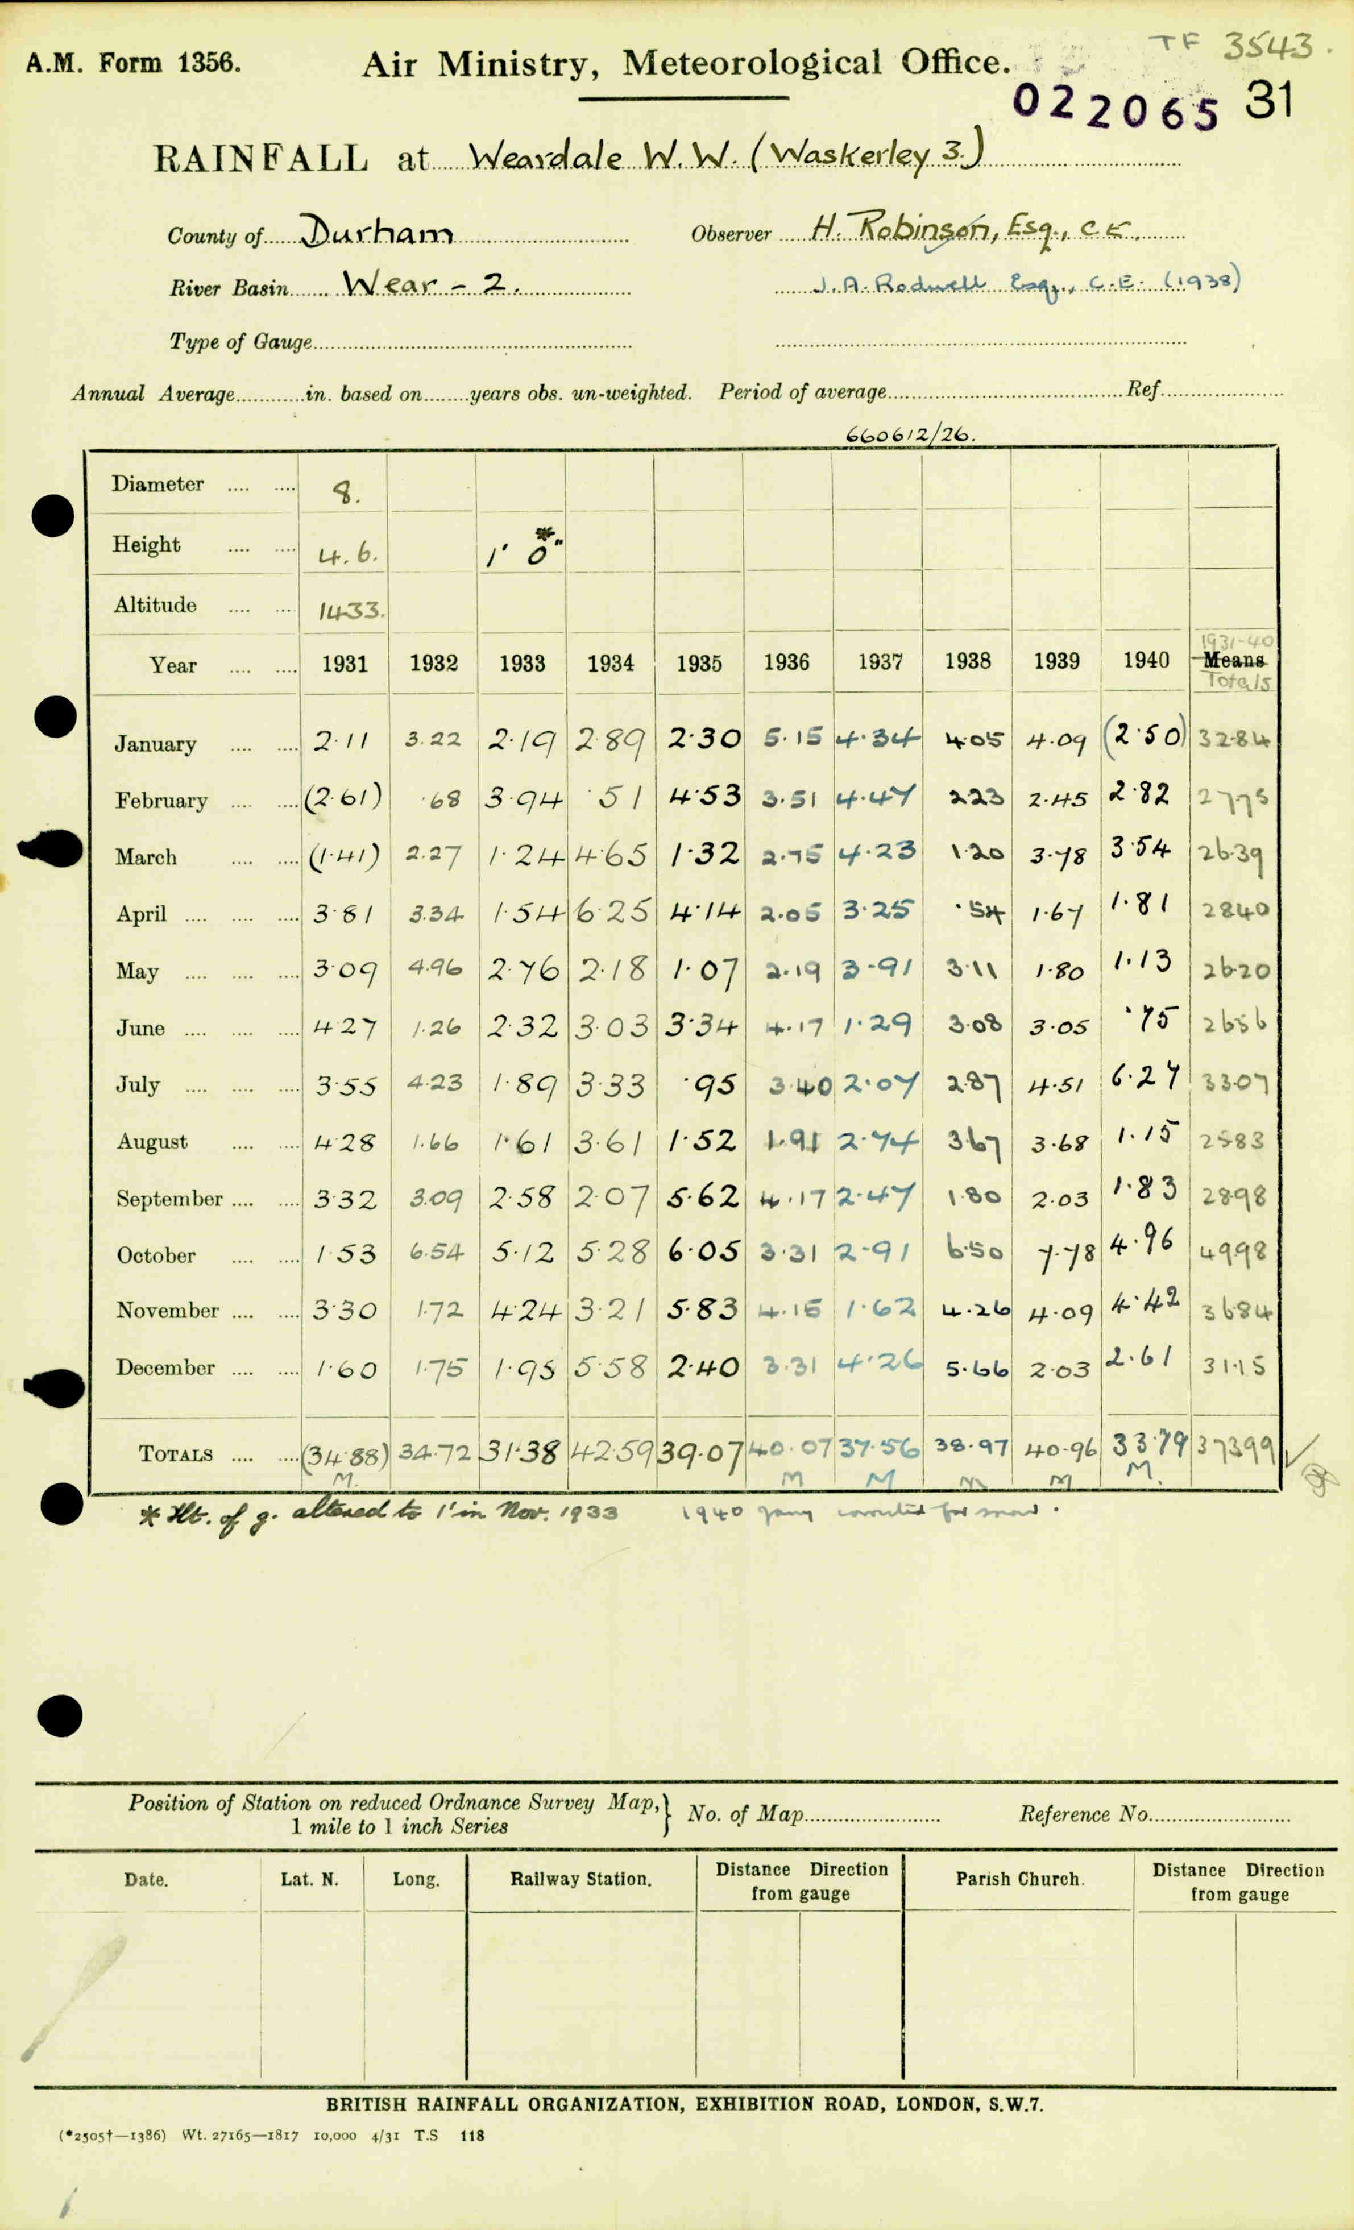 TF 3543.
A.M. Form 1356. Air Ministry, Meteorological Office.
022065 31
RAINFALL at Weardale W.W. (Waskerley 3.)
County of Durham Observer H. Robinson, Esq., C.E.
River Basin Wear - 2. J. A. Rodwell Esq., C.E. (1938)
Type of Gauge
Annual Average in. based on years obs. un-weighted. Period of average Ref.
660612/26.
Diameter 8.
Height 4.6. 1' 0" *
Altitude 1433.
1931-40
Year 1931 1932 1933 1934 1935 1936 1937 1938 1939 1940 Means
Totals
January 2.11 3.22 2.19 2.89 2.30 5.15 4.34 4.05 4.09 (2.50) 32.84
February (2.61) .68 3.94 .51 4.53 3.51 4.47 2.23 2.45 2.82 27.75
March (1.41) 2.27 1.24 4.65 1.32 2.75 4.23 1.20 3.78 3.54 26.39
April 3.81 3.34 1.54 6.25 4.14 2.05 3.25 .54 1.67 1.81 28.40
May 3.09 4.96 2.76 2.18 1.07 2.19 3.91 3.11 1.80 1.13 26.20
June 4.27 1.26 2.32 3.03 3.34 4.17 1.29 3.08 3.05 .75 26.56
July 3.55 4.23 1.89 3.33 .95 3.40 2.07 2.87 4.51 6.27 33.07
August 4.28 1.66 1.61 3.61 1.52 1.91 2.74 3.67 3.68 1.15 25.83
September 3.32 3.09 2.58 2.07 5.62 4.17 2.47 1.80 2.03 1.83 28.98
October 1.53 6.54 5.12 5.28 6.05 3.31 2.91 6.50 7.78 4.96 49.98
November 3.30 1.72 4.24 3.21 5.83 4.15 1.62 4.26 4.09 4.42 36.84
December 1.60 1.75 1.95 5.58 2.40 3.31 4.26 5.66 2.03 2.61 31.15
TOTALS (34.88) 34.72 31.38 42.59 39.07 40.07 37.56 38.97 40.96 33.79 373.99
M. M M M M M.
* Ht. of g. altered to 1' in Nov. 1933 1940 Jany corrected for snow.
Position of Station on reduced Ordnance Survey Map, } No. of Map Reference No.
1 mile to 1 inch Series
Date. Lat. N. Long. Railway Station. Distance Direction from gauge Parish Church. Distance Direction from gauge
BRITISH RAINFALL ORGANIZATION, EXHIBITION ROAD, LONDON, S.W.7.
(*2505†—1386) Wt. 27165—1817 10,000 4/31 T.S 118